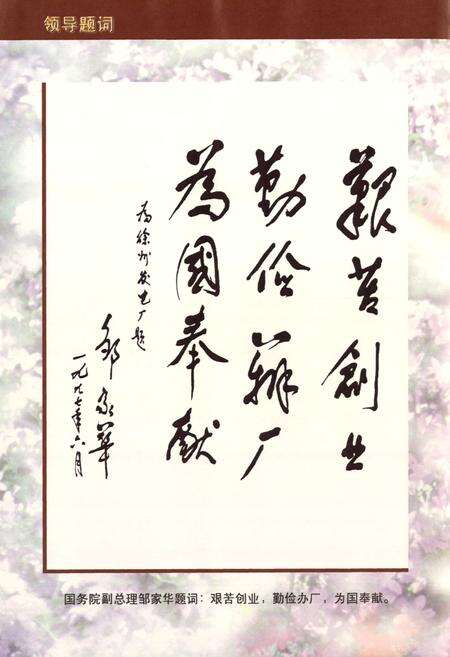 领导题词
艱苦創业
勤俭辦厂
為國奉獻
为徐州发电厂题
邹家華
一九九七年六月
国务院副总理邹家华题词：艰苦创业，勤俭办厂，为国奉献。